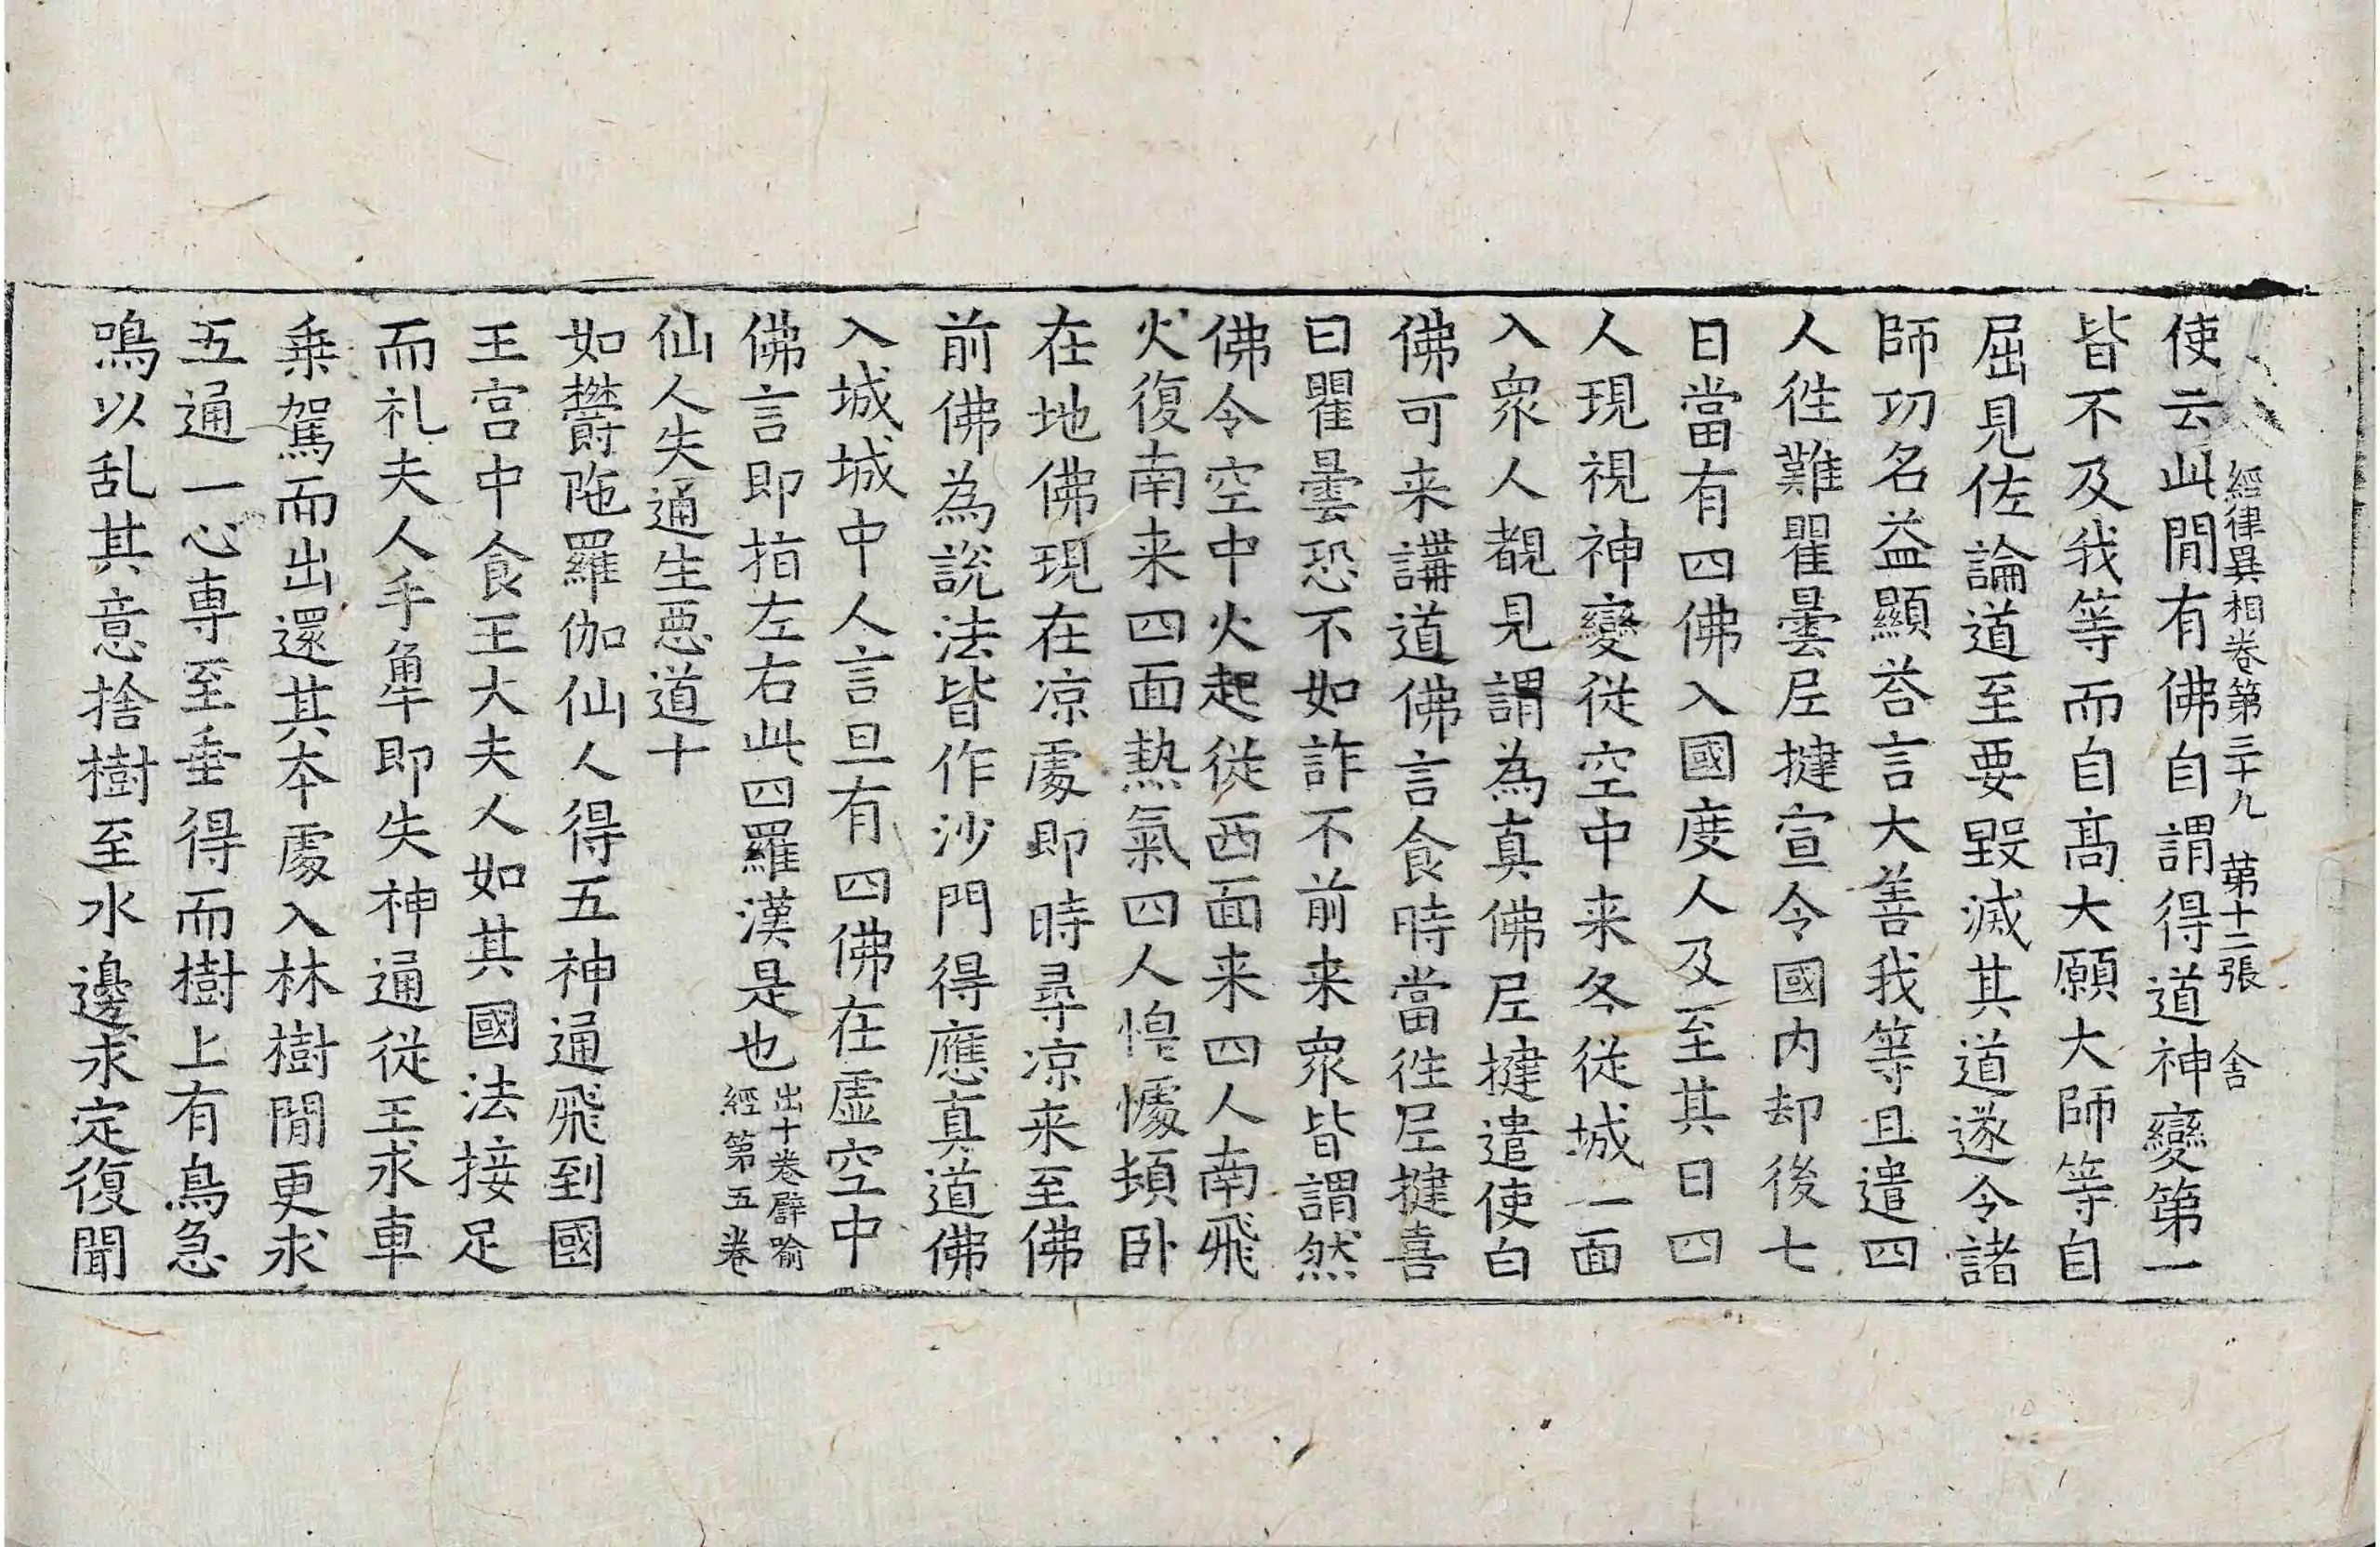 經律異相卷第三十九 第十二張 舍
使云此閒有佛自謂得道神變第一
皆不及我等而自高大願大師等自
屈見佐論道至要毀滅其道遂令諸
師功名益顯荅言大善我等且遣四
人徃難瞿曇𡰱揵宣令國内却後七
日當有四佛入國度人及至其日四
人現視神變従空中来各従城一面
入衆人覩見謂為真佛𡰱揵遣使白
佛可来講道佛言食時當徃𡰱揵喜
曰瞿曇恐不如詐不前来衆皆謂然
佛令空中火起従西面来四人南飛
火復南来四面熱氣四人惶懅頓卧
在地佛現在凉處即時尋凉来至佛
前佛為說法皆作沙門得應真道佛
入城城中人言旦有四佛在虛空中
佛言即指左右此四羅漢是也出十卷辟喻
經第五卷
仙人失通生惡道十
如欝陁羅伽仙人得五神通飛到國
王宮中食王大夫人如其國法接足
而礼夫人手𤛓即失神通從王求車
乗駕而出還其夲處入林樹閒更求
五通一心専至垂得而樹上有鳥急
鳴以乱其意捨樹至水邊求定復聞